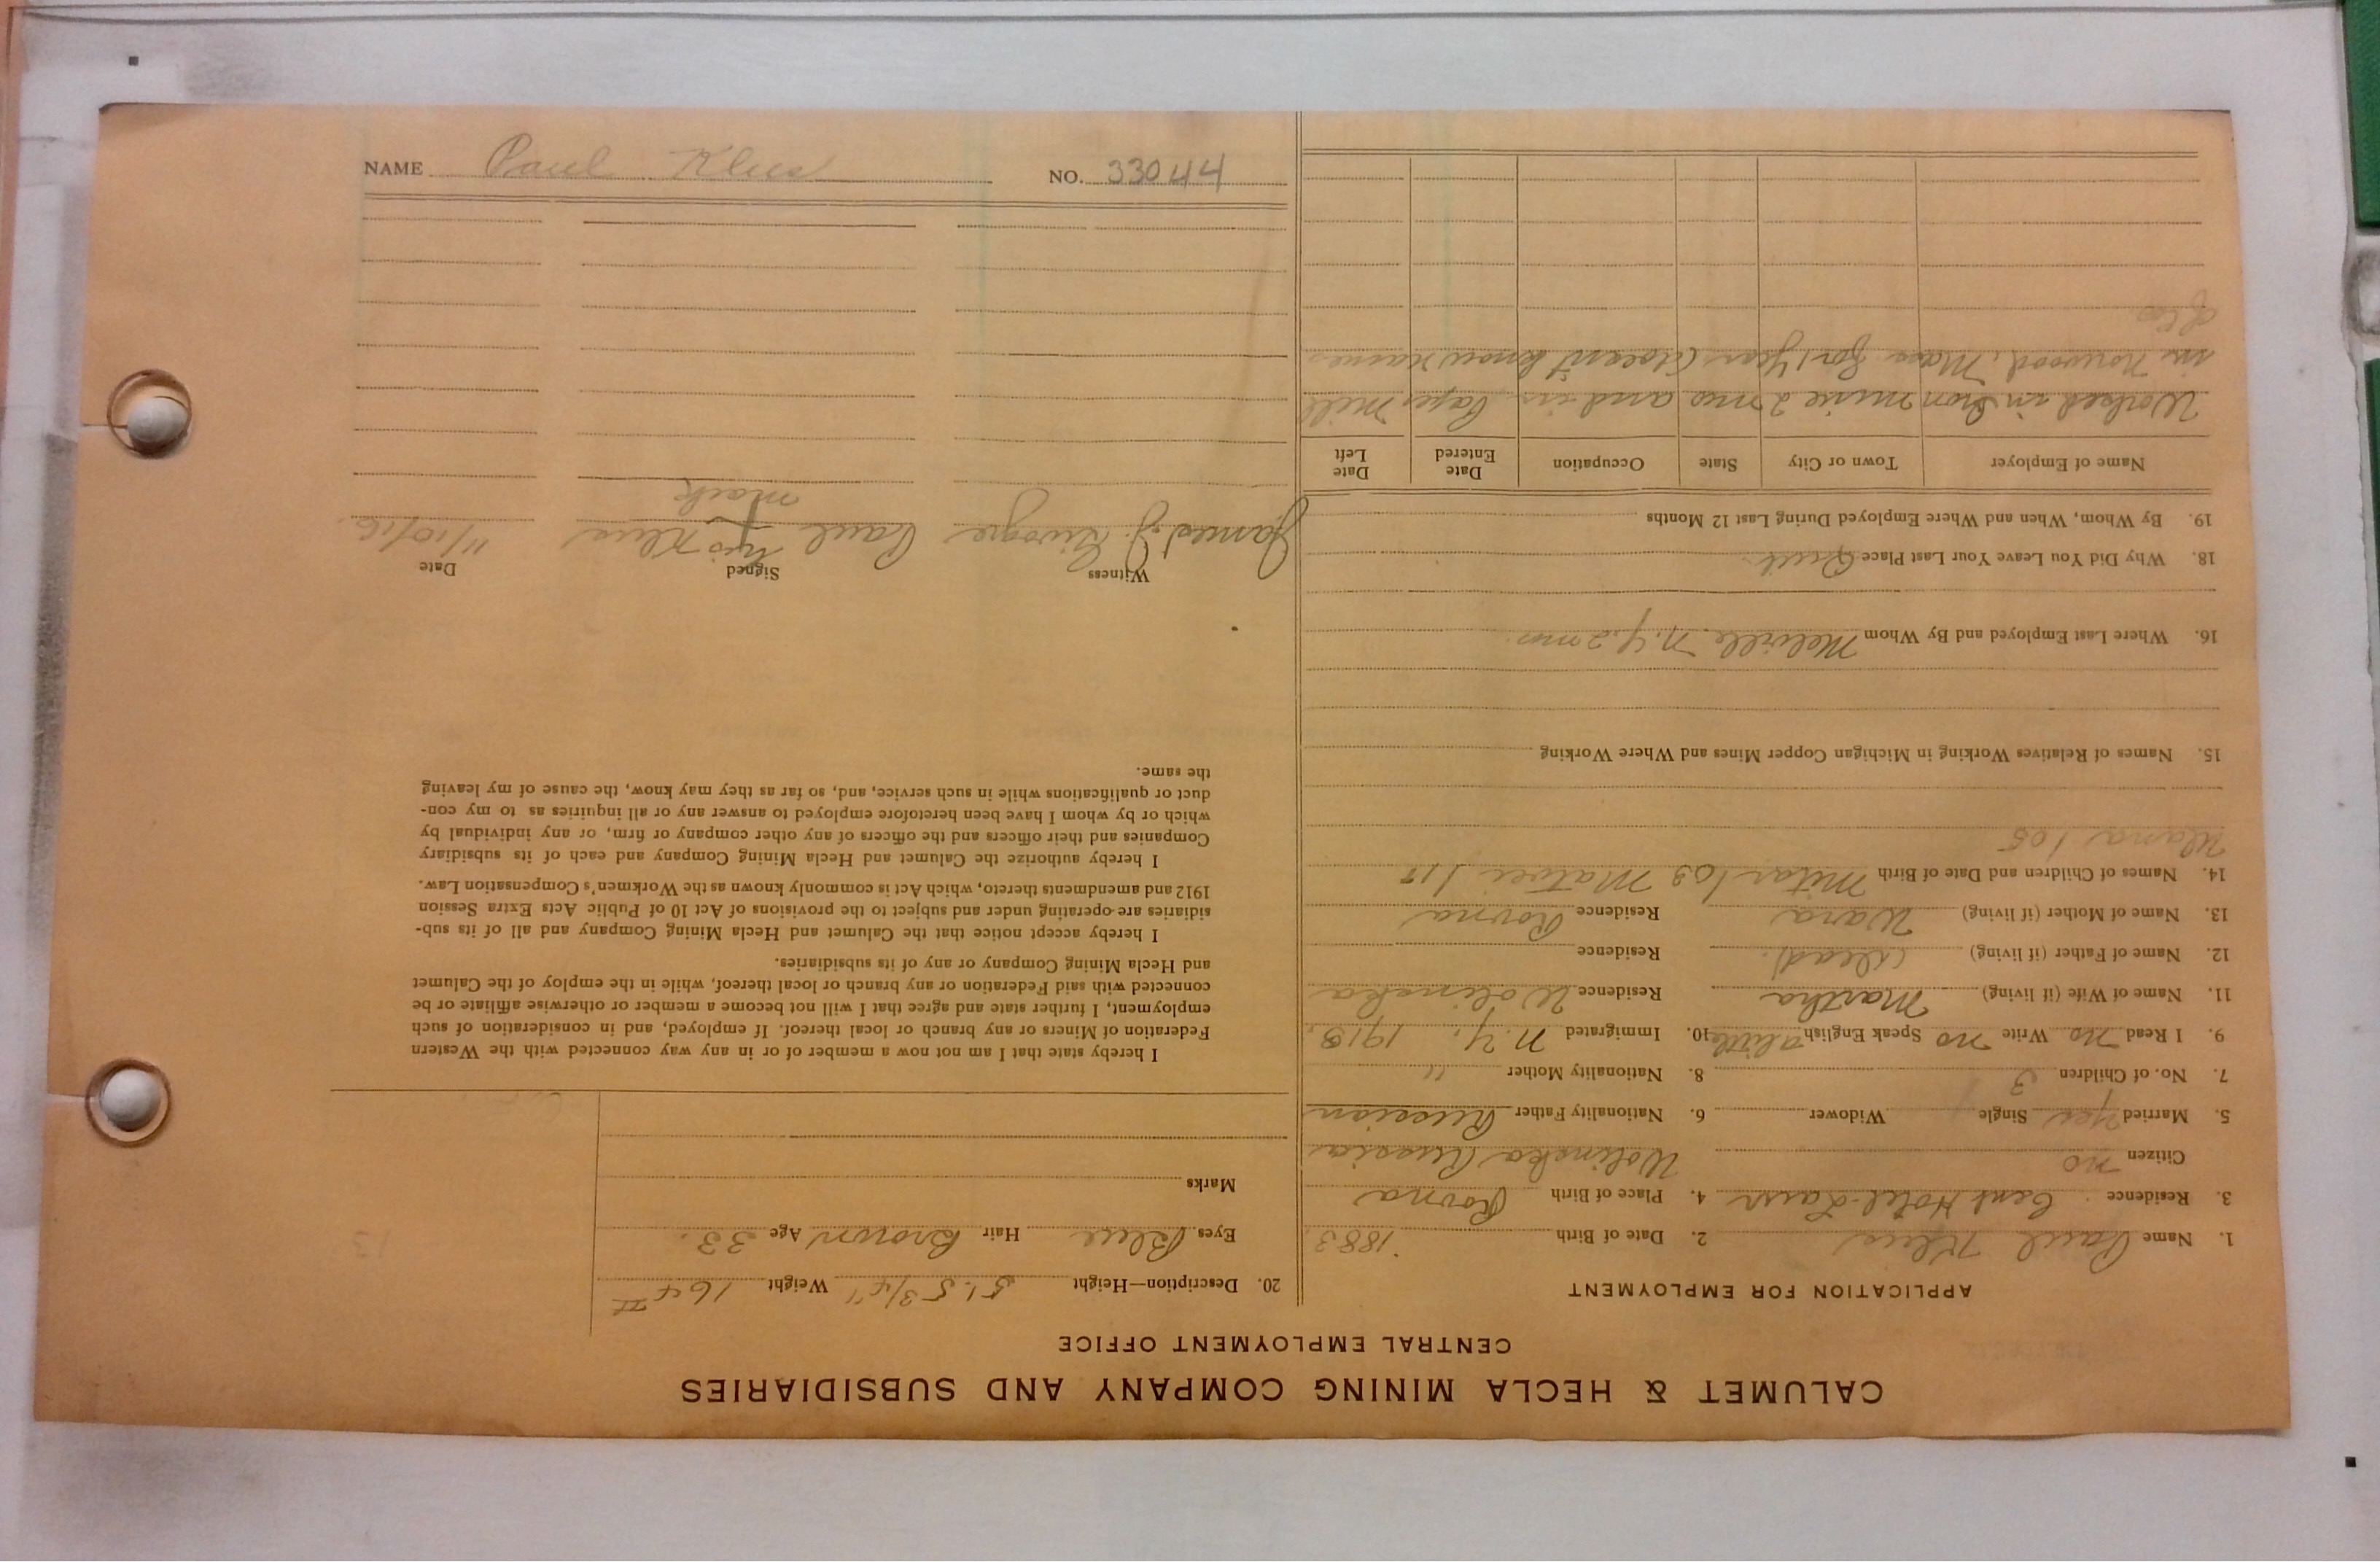 CALUMET & HECLA MINING COMPANY AND SUBSIDIARIES
CENTRAL EMPLOYMENT OFFICE
APPLICATION FOR EMPLOYMENT
1. Name Paul Klus 2. Date of Birth 1883
3. Residence Cent Hotel 4. Place of Birth Rovna
Citizen no Wolinska Russia
5. Married Yes Single Widower 6. Nationality Father Russian
7. No. of Children 3 8. Nationality Mother "
9. I Read no Write no Speak English alittle 10. Immigrated N.Y. 1913
11. Name of Wife (if living) Martha Residence Wolinska
12. Name of Father (if living) (dead) Residence
13. Name of Mother (if living) Wara Residence Rovna
14. Names of Children and Date of Birth
15. Names of Relatives Working in Michigan Copper Mines and Where Working
16. Where Last Employed and By Whom Melville N.Y. 2 mos
18. Why Did You Leave Your Last Place Quit.
19. By Whom, When and Where Employed During Last 12 Months
Name of Employer Town or City State Occupation Date Entered Date Left
Worked in Iron mine 2 mos and in Paper Mill
in Norwood, Mass for 1 year (doesn't know names
20. Description—Height 5'. 5 3/4" Weight 164 #
Eyes Blue Hair Brown Age 33.
Marks
I hereby state that I am not now a member of or in any way connected with the Western
Federation of Miners or any branch or local thereof. If employed, and in consideration of such
employment, I further state and agree that I will not become a member or otherwise affiliate or be
connected with said Federation or any branch or local thereof, while in the employ of the Calumet
and Hecla Mining Company or any of its subsidiaries.
I hereby accept notice that the Calumet and Hecla Mining Company and all of its sub-
sidiaries are operating under and subject to the provisions of Act 10 of Public Acts Extra Session
1912 and amendments thereto, which Act is commonly known as the Workmen's Compensation Law.
I hereby authorize the Calumet and Hecla Mining Company and each of its subsidiary
Companies and their officers and the officers of any other company or firm, or any individual by
which or by whom I have been heretofore employed to answer any or all inquiries as to my con-
duct or qualifications while in such service, and, so far as they may know, the cause of my leaving
the same.
Witness Signed Date
James J. Paul his Klus 11/10/16.
mark
NAME Paul Klus NO. 33044